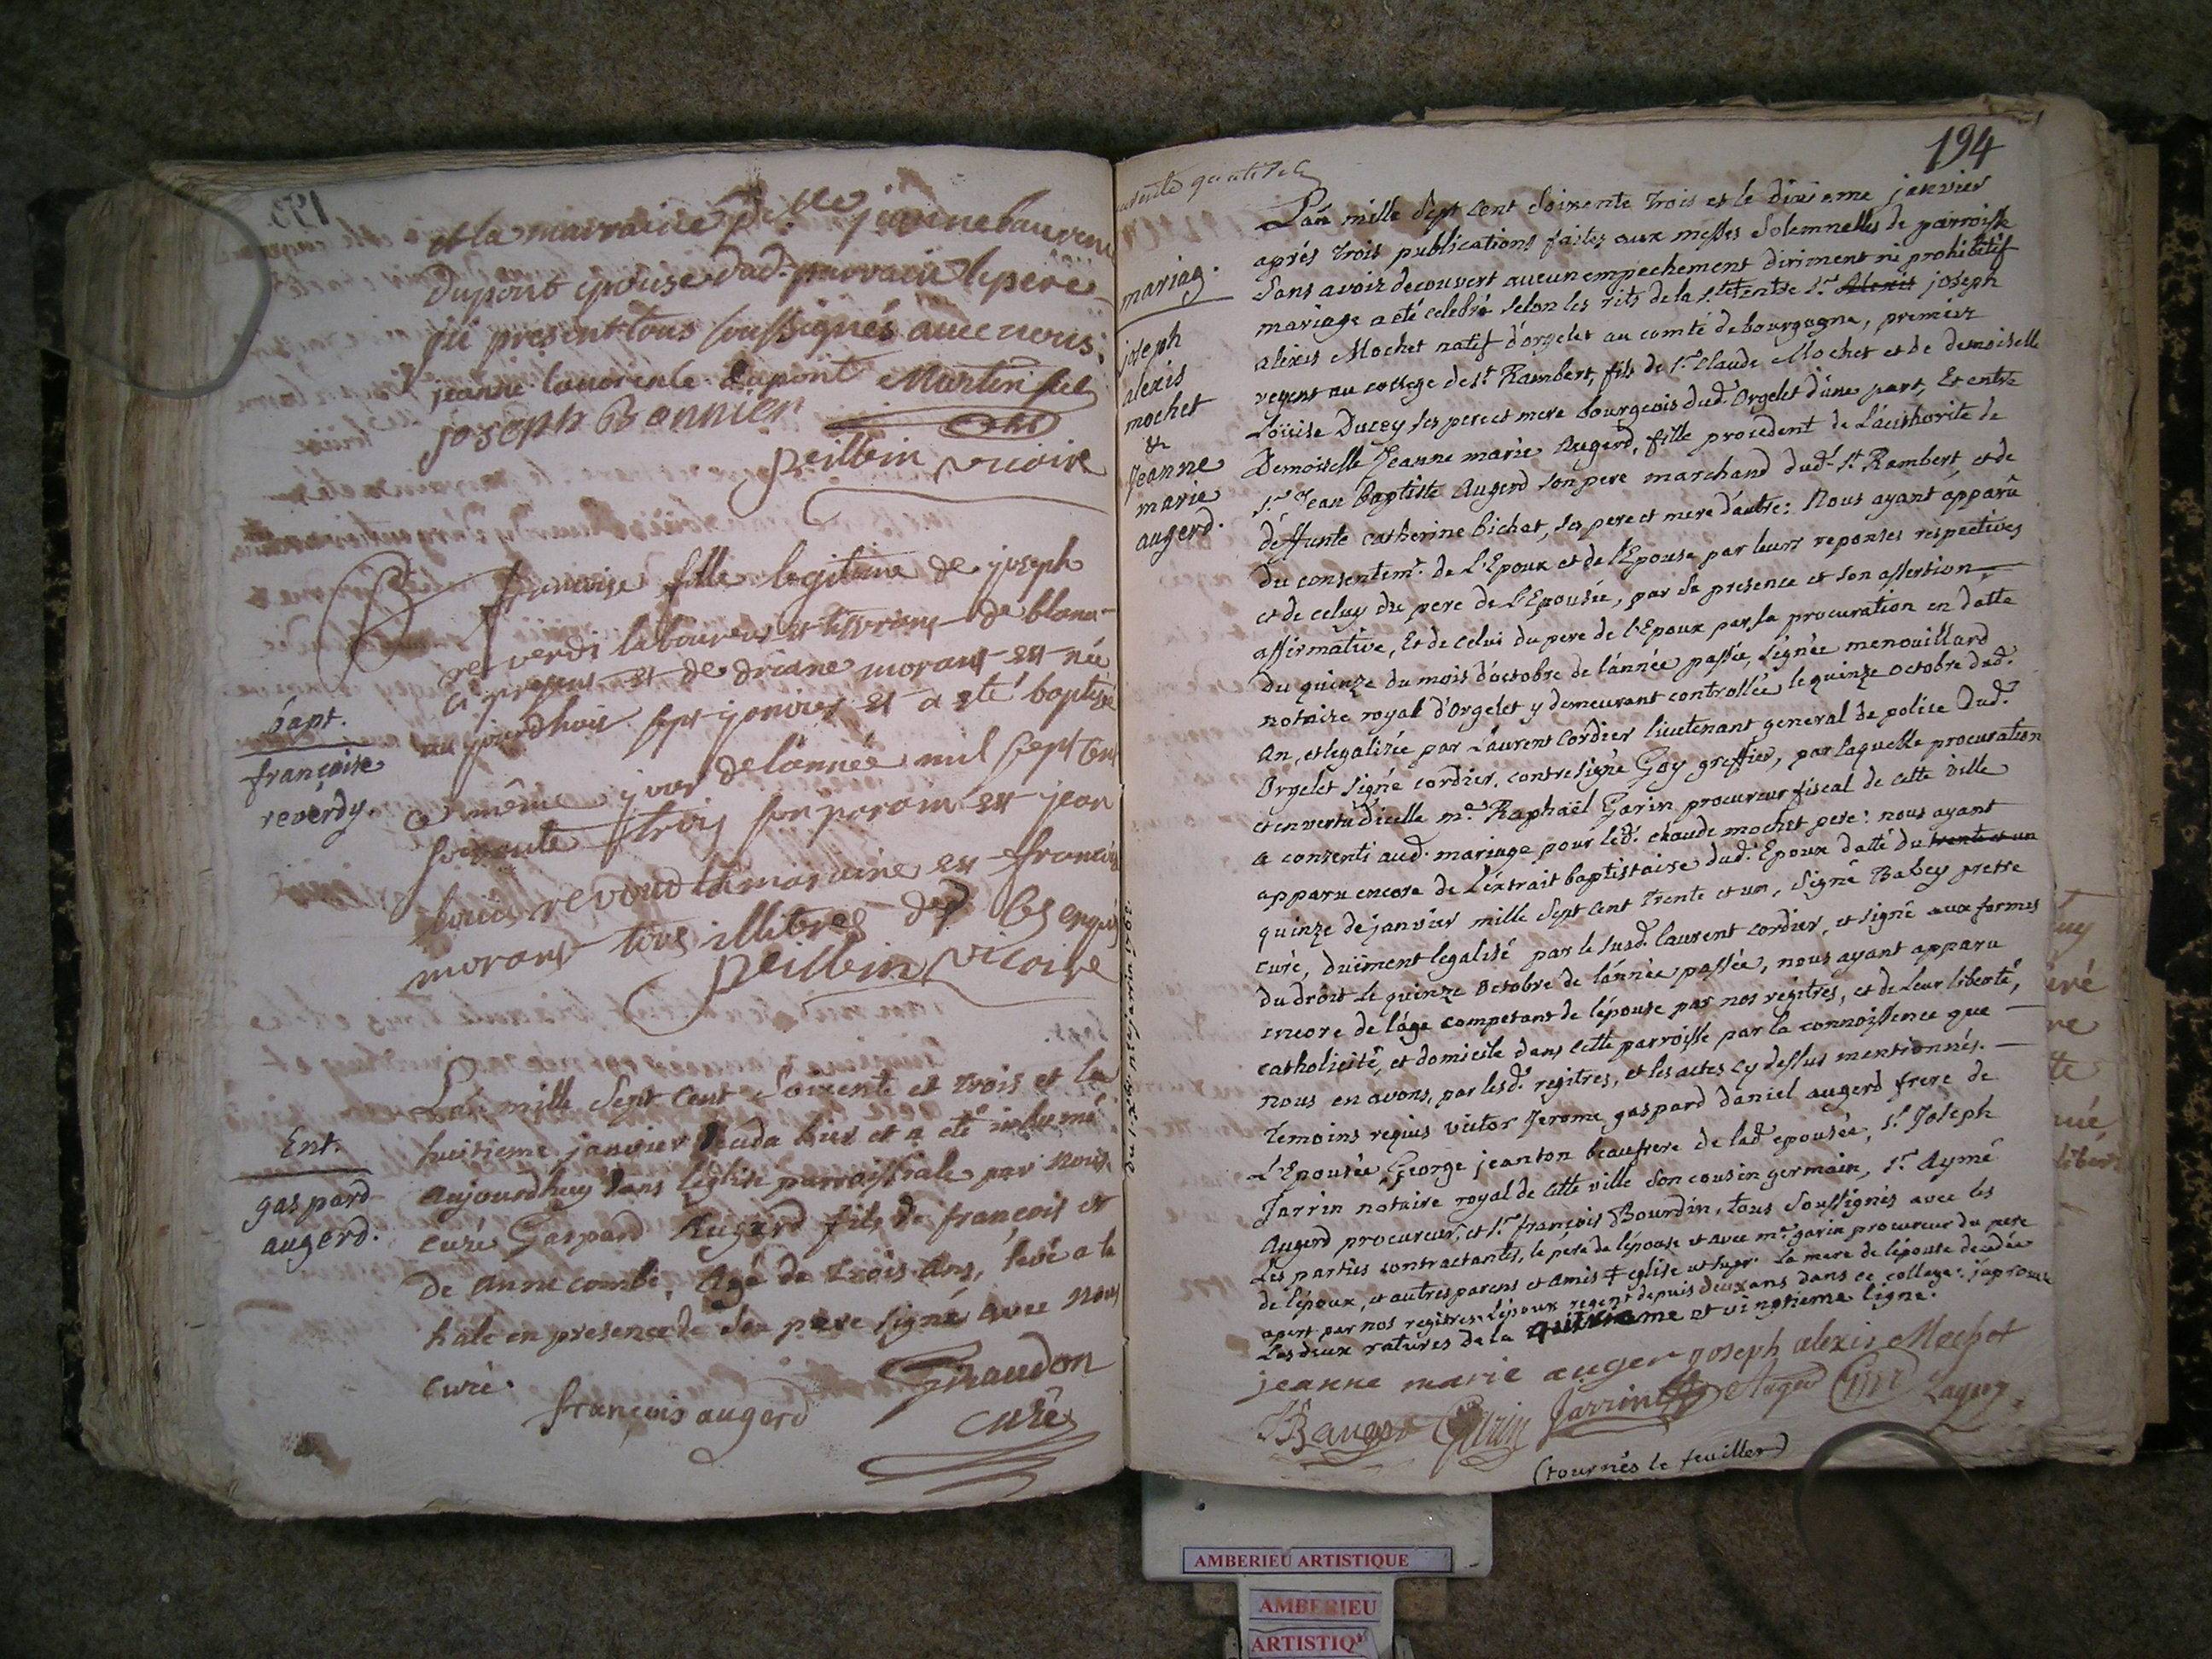 et la marraine d.lle jeanne laurence
dupont epouse dud. parrain le pere
ici present tous soussignés avec nous.
jeanne laurente dupont Martin fils
joseph Bonnier
peillein vicaire
bapt.
françoise
reverdy.
francoise fille legitime de joseph
reverdi laboureur et tisserant de blana
a present et de driane morant est née
aujourdhuit sept janvier et a eté baptisée
ce même jour de l'année mil sept cent
soixante trois son parain est jean
louis revoud la maraine est francoise
morant tous illitrés de ce enquis
peillein vicaire
Ent.
gaspard
augerd.
L'an mille Sept Cent Soixente et trois et le
huitieme janvier deceda hier et a eté inhumé
aujourdhuy dans l'eglise parroissiale par nous
curé Gaspard Augerd fils de françois et
de anne combe, agé de trois ans, levé a la
hale en presence de son pere signé avec nous
curé.
françois augerd
Giraudon
curé
194
mariag.
joseph
alexis
mochet
&
Jeanne
marie
augerd.
L'an mille sept cent soixente trois et le dixieme janvier
aprés trois publications faites aux messes solemnelles de parroisse
sans avoir decouvert aucun empechement diriment ni prohibitif
mariage a été celebré selon les rits de la s.te entre s.r Alexis joseph
alexis Mochet natif d'orgelet au comté de bourgogne, premier
regent au college de s.t Rambert, fils de s.r Claude Mochet et de demoiselle
Loüise Ducey ses pere et mere bourgeois dud. Orgelet d'une part, Et entre
Demoiselle Jeanne marie Augerd, fille procedent de l'authorite de
s.r Jean baptiste Augerd son pere marchand dud. s.t Rambert et de
deffunte catherine bichat, ses pere et mere d'autre: Nous ayant apparû
du consentem.t de L'Epoux et de l'Epouse par leurs reponses respectives
et de celuy du pere de L'Epousée, par sa presence et son assertion
affirmative, Et de celui du pere de l'Epoux par sa procuration en datte
du quinze du mois d'octobre de l'année passée, signée menouillard
notaire royal d'Orgelet y demeurant controllée le quinze octobre dud.
an, et legalizée par Laurent Cordier lieutenant general de police dud.
Orgelet signé cordier, contresigné Goy greffier, par laquelle procuration
et en vertu d'icelle m.e Raphaël Garin procureur fiscal de cette ville
a consenti aud. mariage pour led. claude mochet pere: nous ayant
apparu encore de l'éxtrait baptistaire dud. Epoux datté du trente et un
quinze de janvier mille sept cent trente et un, signé Babey pretre
curé, duëment legalisé par le susd. laurent cordier, et signé aux formes
du droit le quinze Octobre de l'année passée, nous ayant apparu
encore de l'age competant de l'épouse par nos regitres, et de leur liberté,
catholicité, et domicile dans cette parroisse par la connoissence que
nous en avons, par lesd. regitres, et les actes cy dessus mentionnés.
Temoins requis victor Jerome gaspard daniel augerd frere de
L'Epousée, George jeanton beaufrere de lad. epousée, s.r Joseph
Jarrin notaire royal de cette ville son cousin germain, s.r Aymé
Augerd procureur, et s.r françois Bourdin, tous soussignés avec les
Les parties contractantes, le père de l'épouse et avec m.e garin procureur du pere
de l'époux, et autres parens et amis ‡ eglise ut supr. la mere de l'épouse decedée
apert par nos regitres, l'époux regent depuis deux ans dans ce college. j'aprouve
Les deux ratures de la quatrieme et vingtieme ligne.
jeanne marie auger joseph alexis Mochet
JB augerd Garin Jarrin Augerd
(tournés le feuillet)
AMBERIEU ARTISTIQUE
AMBERIEU
ARTISTIQ